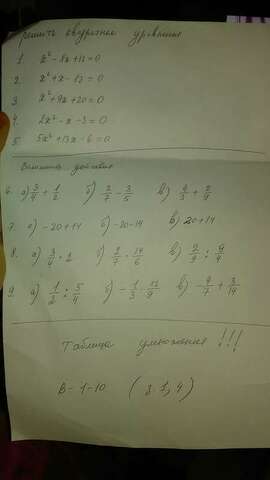 решить квадратное уравнения
1. x² - 8x + 12 = 0
2. x² + x - 12 = 0
3 x² + 9x + 20 = 0
4. 2x² - x - 3 = 0
5. 5x² + 13x - 6 = 0
Выполнить действия
6. а) 3/4 + 1/2 б) 2/7 - 3/5 в)
7. а) -20+14 б) -20-14 в) 20+14
8. а) б) в)
9. а) 1/2 : 5/4 б) в) -9/7 + 3/14
Таблица умножения !!!
В - 1-10